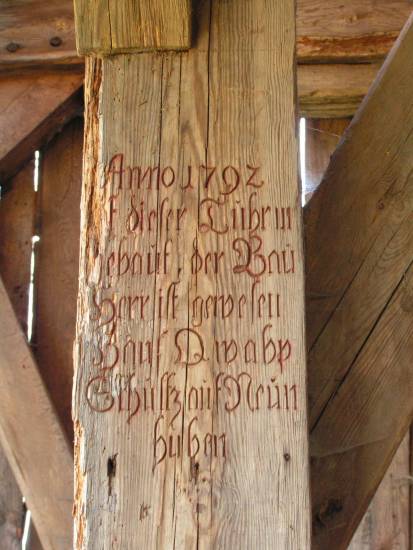 Anno 1792
ist dieser Tuhrm
gebaut, der Bau
Herr ist gewesen
Hans Q wahp
Schultz auf Neun
huben